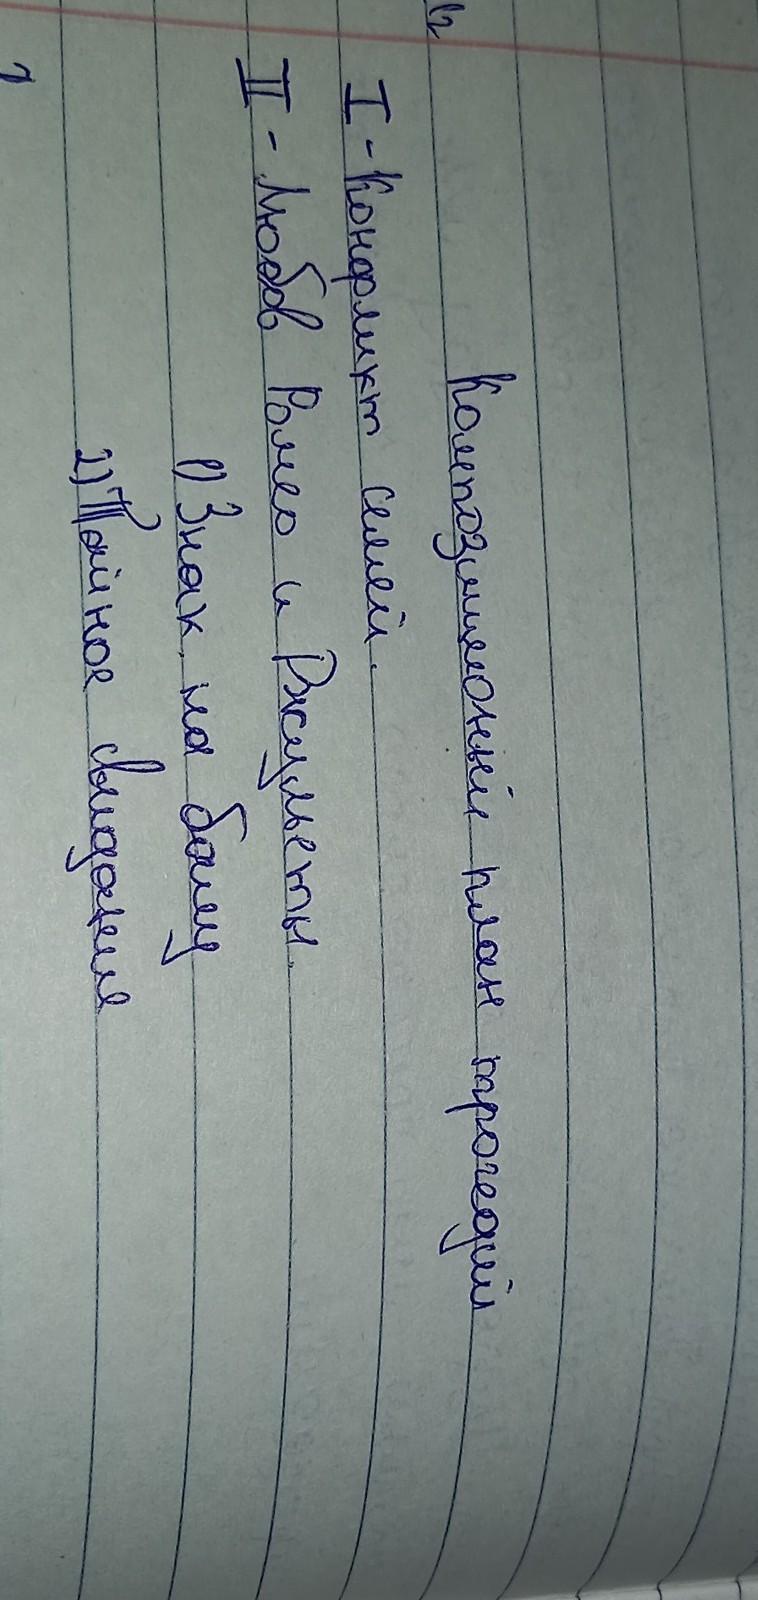 Композиционый план трогедий
I - Конфликт семей.
II - Любов Ромео и Джульеты.
1) Знак. на балу
2) Тайное свидание